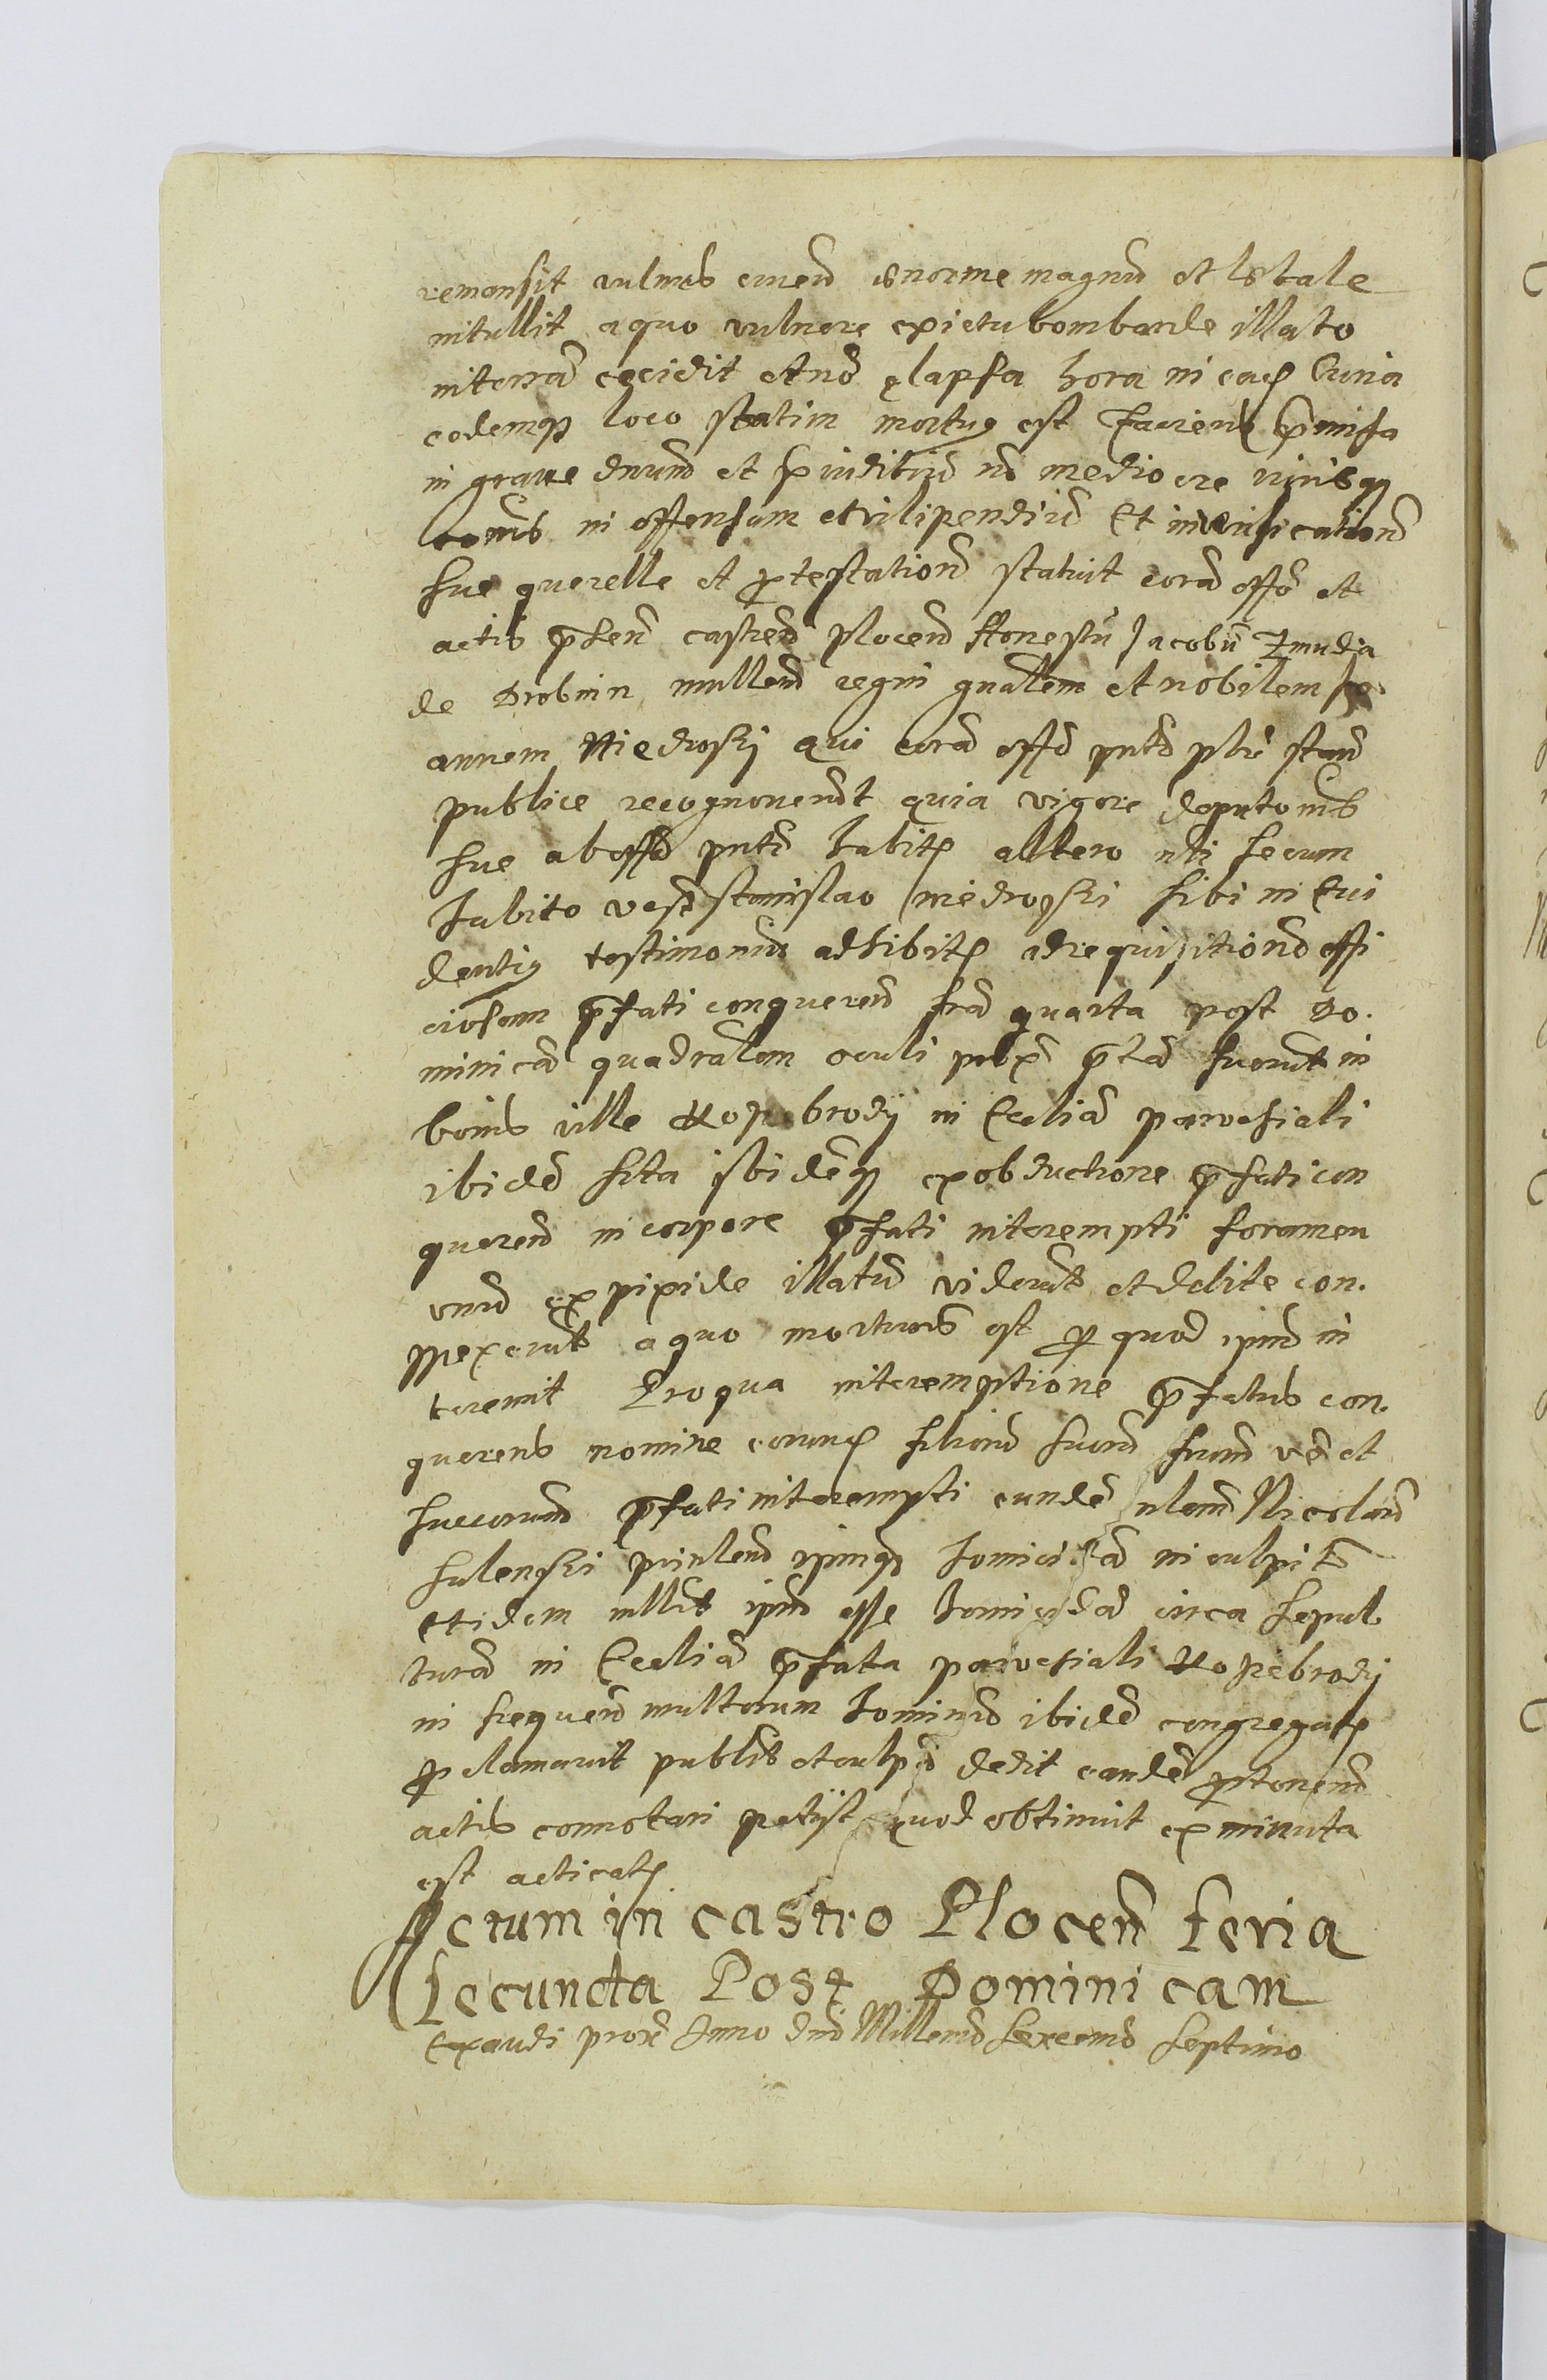 remansit vulnus unum enorme magnum et letale
intullit a quo vulnere ex ictu bombarde illato
in terram cecidit et non elapsa hora in eadem Curia
eodemque loco statim mortuus est Faciens premissa
in grave damnum et preiudicium non mediocre iurisque
communis in offensam et vilipendium Et in verificationem
sue querelle et protestationis statuit coram officio et
actis presentibus castrensibus Plocensibus Honestum Jacobum Zmudja
de Drobnin ministerialem regni generalem et nobilem Jo
annem Niedroski qui coram officio presenti personaliter stans
publice recognoverunt quia vigore deputationis
sue ab officio presenti habite altero nobili secum
habito vero Stanislao Miedroski sibi in Evi
dentius testimonium adhibitis ad requisitionem offi
ciosam prefati conquerentis feria quarta post Do
minicam quadragesimalem oculi proxime preteritam fuerunt in
bonis ville Rogebrodij in Ecclesia parochiali
ibidem sita ibidemque ex obductione prefati con
querentis in corpore prefati interempti foramen
unum ex pixide illatum viderunt et debite con
spexerunt a quo mortuus est per quod ipsum in
teremit Pro qua interemptione prefatus con
querens nomine eorundem filiorum suorum suum vero et
successorum prefati interempti eundem nobilem Nicolaum
Sulenski principalem ipsumque homicidam inculpavit
et idem ministerialis ipsum esse homicidam circa sepul
turam in Ecclesia prefata parochiali Rogebrodij
in frequentia multorum hominum ibidem congregatorum
proclamavit publicavit et culpam dedit eandem protestationem
actis connotari petijt quod obtinuit ex minuta
est acticatum
Actum in castro Plocen feria
secunda Post Dominicam
Exaudi proxima Anno domini Millesimo sexcentesimo septimo